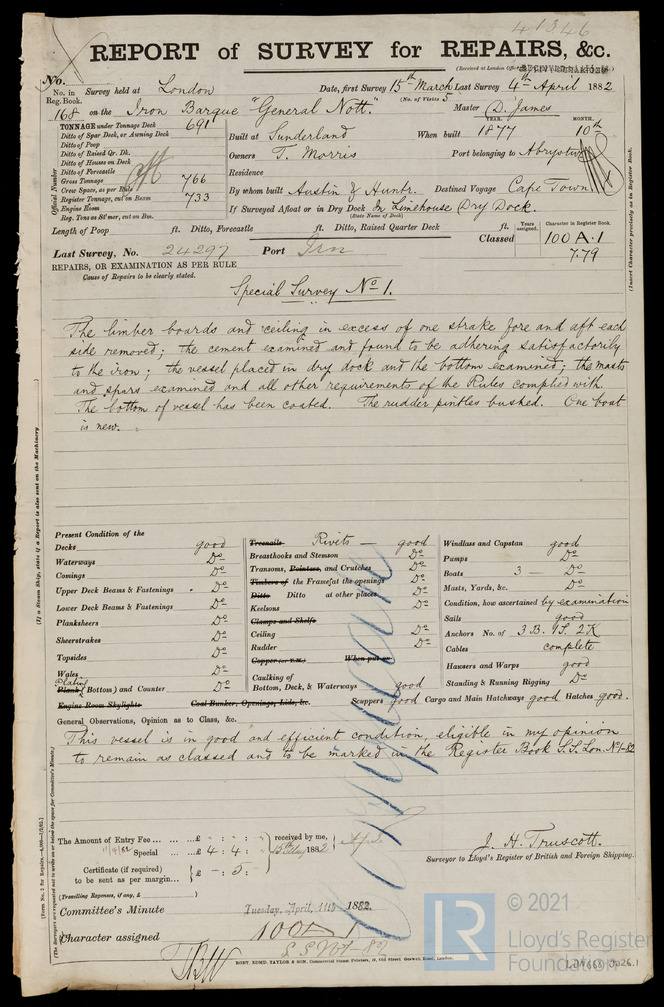 41346
REPORT of SURVEY for REPAIRS, &c.
(Received at London Office
No.
No. in Reg. Book. Survey held at London Date, first Survey 15th March Last Survey 4th April 1882
(No. of Visits 5
168 on the Iron Barque "General Nott." Master D. James
TONNAGE under Tonnage Deck 691
Ditto of Spar Deck, or Awning Deck
Ditto of Poop
Ditto of Raised Qr. Dk.
Ditto of Houses on Deck
Ditto of Forecastle
Gross Tonnage 766
Crew Space, as per Rule
Register Tonnage, cut on Beam 733
Engine Room
Reg. Tons as St'mer, cut on Bm.
Official Number
Built at Sunderland When built YEAR. 1877 MONTH. 10th
Owners T. Morris Port belonging to Abrystwith
Residence
By whom built Austin & Huntr. Destined Voyage Cape Town
If Surveyed Afloat or in Dry Dock In Limehouse Dry Dock.
(State Name of Dock)
Length of Poop ft. Ditto, Forecastle ft. Ditto, Raised Quarter Deck ft.
Years assigned. Character in Register Book.
Last Survey, No. 24297 Port Irn Classed 100 A.1
7.79
(Insert Character precisely as in Register Book.
REPAIRS, OR EXAMINATION AS PER RULE
Cause of Repairs to be clearly stated.
Special Survey No 1.
The limber boards and ceiling in excess of one strake fore and aft each
side removed; the cement examined and found to be adhering satisfactorily
to the iron; the vessel placed in dry dock and the bottom examined; the masts
and spars examined and all other requirements of the Rules complied with.
The bottom of vessel has been coated. The rudder pintles bushed. One boat
is new.
(If a Steam Ship, state if a Report is also sent on the Machinery
Present Condition of the
Decks good
Waterways Do
Comings Do
Upper Deck Beams & Fastenings Do
Lower Deck Beams & Fastenings Do
Planksheers Do
Sheerstrakes Do
Topsides Do
Wales Do
Plating
Plank (Bottom) and Counter Do
Engine Room Skylights Coal Bunker, Openings, Lids, &c.
Treenails Rivets — good
Breasthooks and Stemson Do
Transoms, Pointers, and Crutches Do
Timbers of the Frame at the openings Do
Ditto Ditto at other places Do
Keelsons Do
Clamps and Shelfs
Ceiling Do
Rudder Do
Copper (or Y.M.) When put on
Caulking of
Bottom, Deck, & Waterways good
Windlass and Capstan good
Pumps Do
Boats 3 — Do
Masts, Yards, &c. Do
Condition, how ascertained by examination
Sails good
Anchors No. of 3 B. 1 S. 2 K
Cables complete
Hausers and Warps good
Standing & Running Rigging Do
Scuppers good Cargo and Main Hatchways good Hatches good.
General Observations, Opinion as to Class, &c.
This vessel is in good and efficient condition, eligible in my opinion
to remain as classed and to be marked in the Register Book S.S. Lon. No1-82
The Amount of Entry Fee £ : :
Special £ 4 : 4 :
received by me, 1882
Certificate (if required)
to be sent as per margin £ - : 5 :
(Travelling Expenses, if any, £
J. H. Truscott.
Surveyor to Lloyd's Register of British and Foreign Shipping.
Committee's Minute Tuesday, April, 11th 1882.
Character assigned 100A1
S S No1-82
ROBT. EDMD. TAYLOR & SON, Commercial Steam Printers, 19, Old Street, Goswell Road, London.
© 2021
LR Lloyd's Register
Foundation